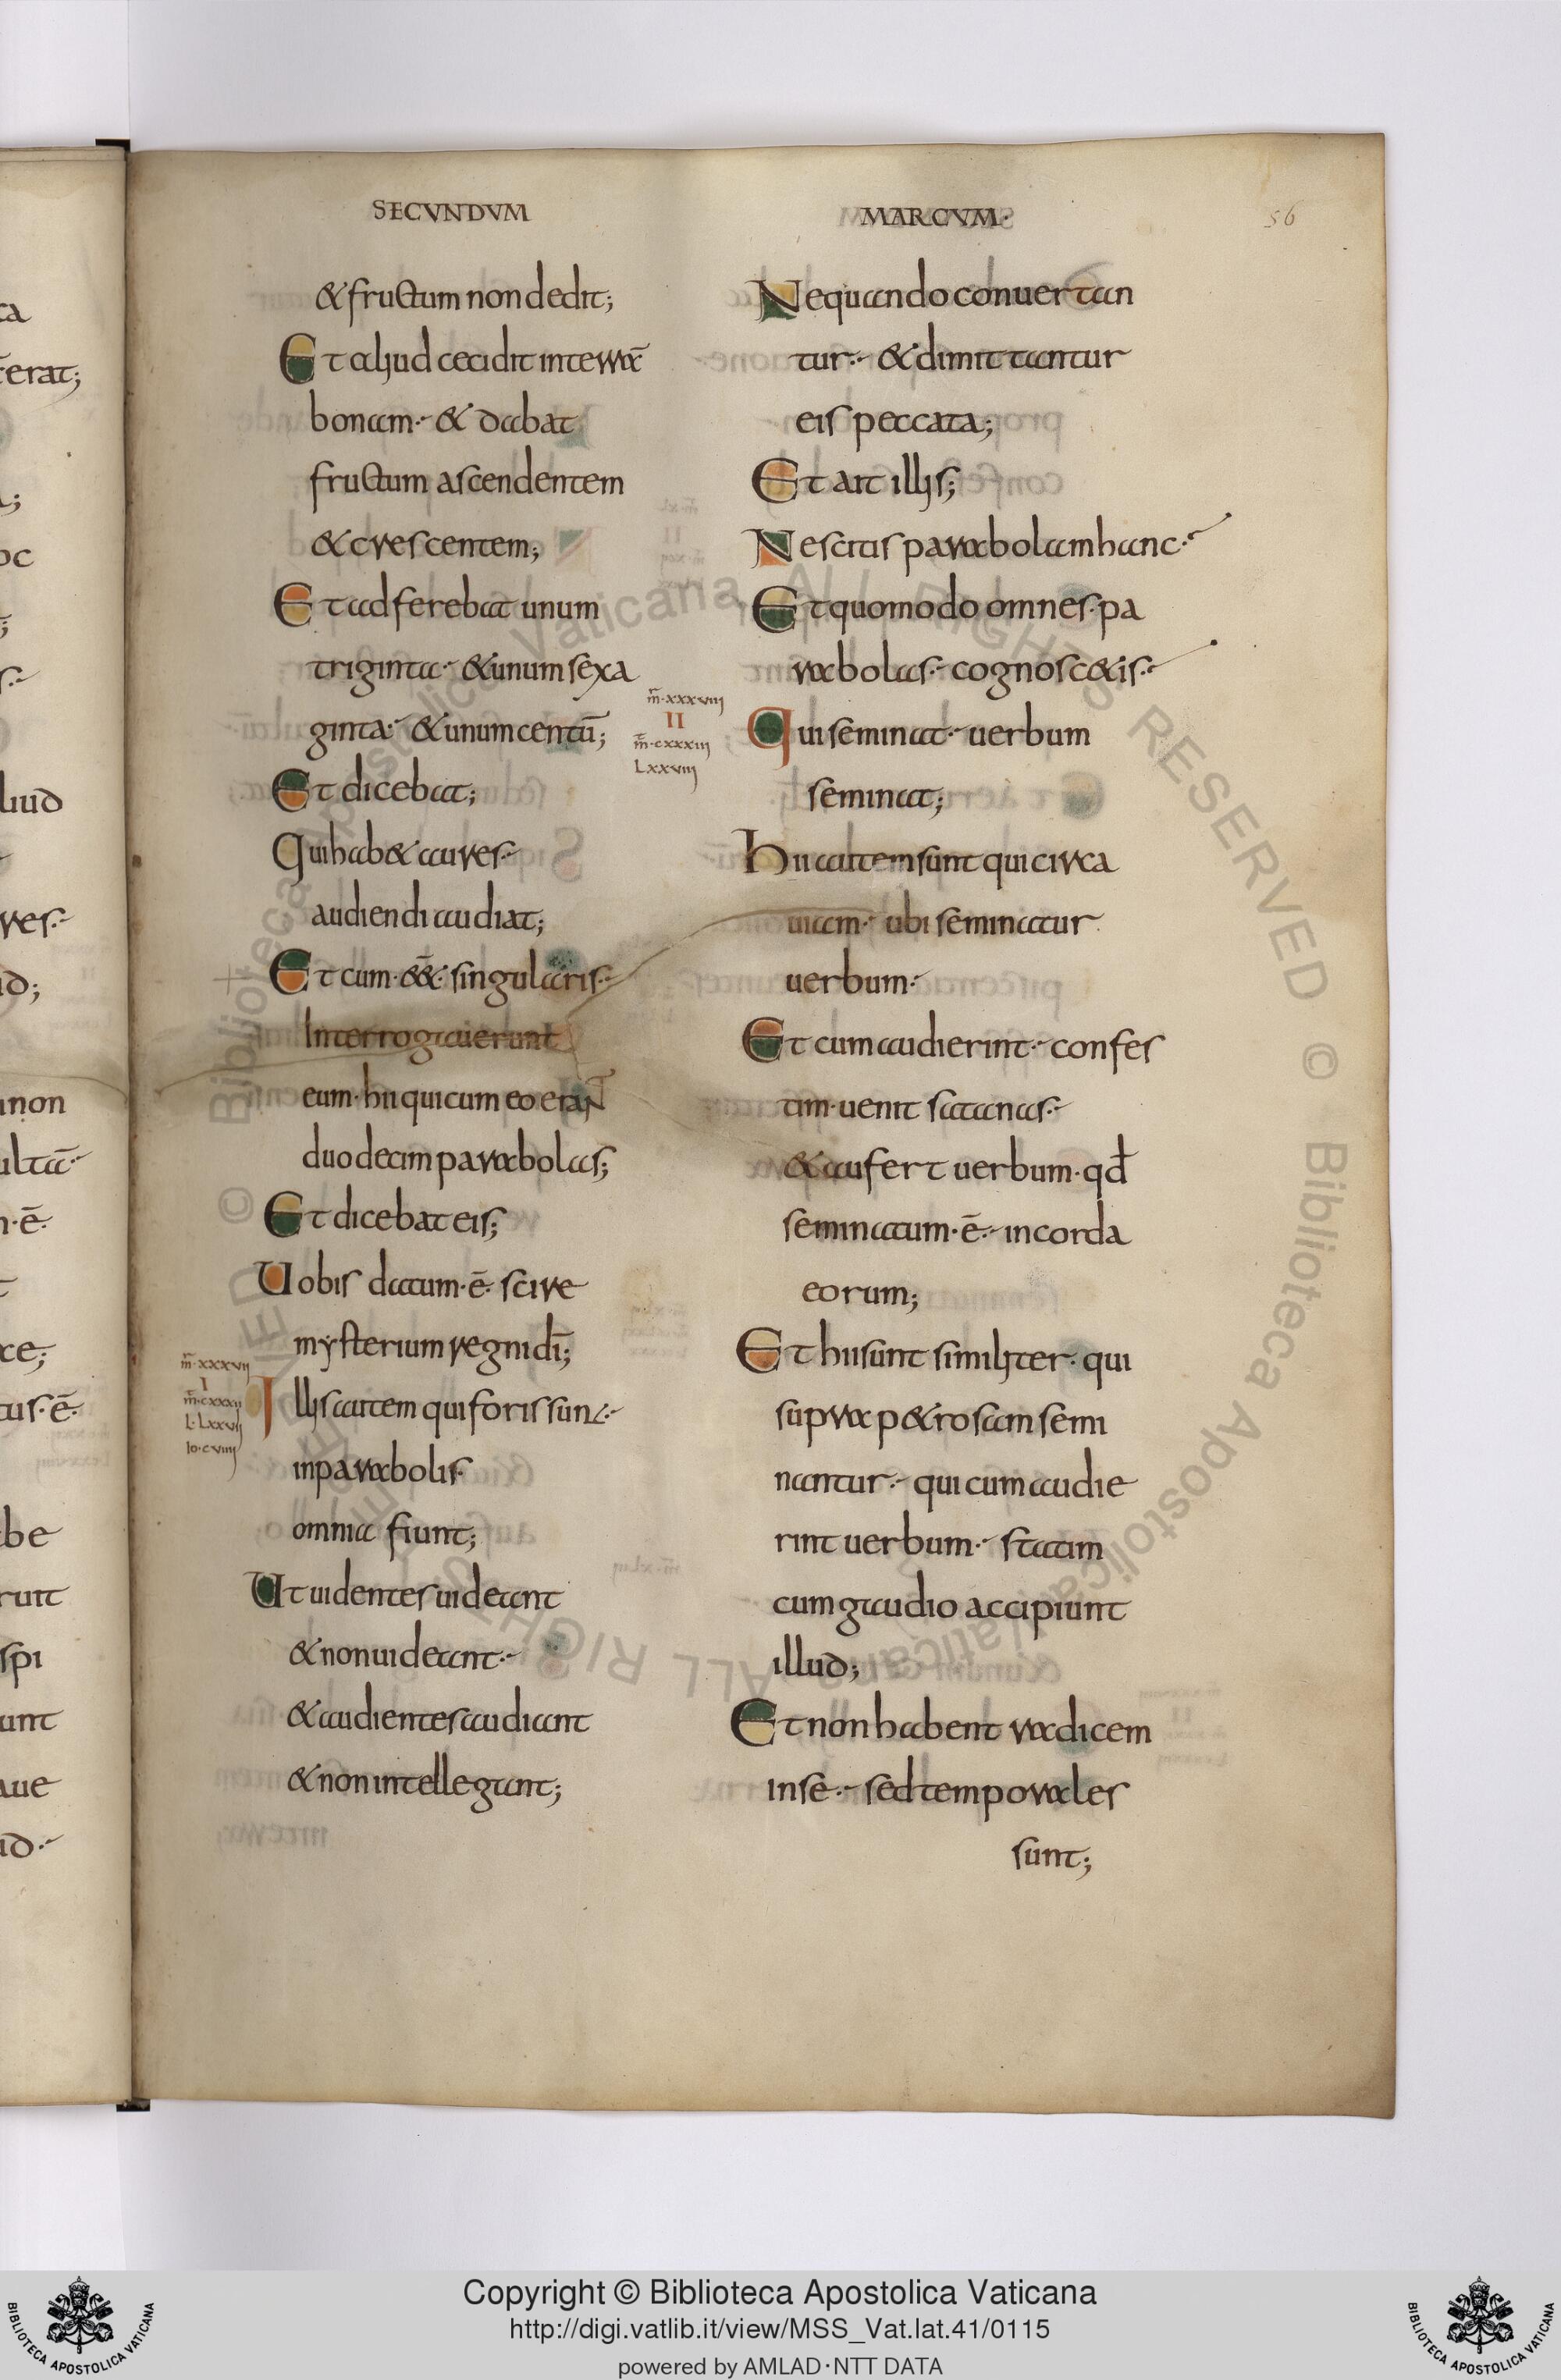 SECVNDVM
& fructum non dedit;
Et aliud cecidit in terrā
bonam · & dabat
fructum ascendentem
& crescentem;
Et adferebat unum
triginta · & unum sexa
ginta · & unum centū;
Et dicebat;
Qui hab& aures
audiendi audiat;
Et cum · ēēt · singularis
Interrogauerunt
eum · hii qui cum eo eraNT
duodecim parabolas;
Et dicebat eis;
Uobis datum · ē · scire
mysterium regni dī;
Illis autem qui foris sunt
in parabolis
omnia fiunt;
Ut uidentes uideant
& non uideant
& audientes audiant
& non intellegant;
m̄ · xxxvii
I
m̄ · cxxxii
L · Lxxvii
Io · cviiii
m̄ · xxxviii
II
m̄ · cxxxiii
Lxxviii
MARCVM ·
56
Nequando conuertan
tur · & dimittantur
eis peccata;
Et ait illis;
Nescitis parabolam hanc
Et quomodo omnes · pa
rabolas · cognosc&is
Qui seminat · uerbum
seminat;
Hii autem sunt qui circa
uiam · ubi seminatur
uerbum ·
Et cum audierint · confes
tim · uenit satanas
& aufert uerbum · qd̄
seminatum · ē · in corda
eorum;
Et hii sunt similiter · qui
supra p&rosam semi
nantur · qui cum audie
rint uerbum · statim
cum gaudio accipiunt
illud;
Et non habent radicem
in se · sed temporales
sunt;
ca
terat;
oc
liud
res
ud;
non
ulta
ē
ce;
tus · ē
be
ruit
spi
unt
aue
ud
© Biblioteca Apostolica Vaticana ALL RIGHTS RESERVED
© Biblioteca Apostolica Vaticana ALL RIGHTS RESERVED
Copyright © Biblioteca Apostolica Vaticana
http://digi.vatlib.it/view/MSS_Vat.lat.41/0115
powered by AMLAD·NTT DATA
BIBLIOTECA APOSTOLICA VATICANA
BIBLIOTECA APOSTOLICA VATICANA